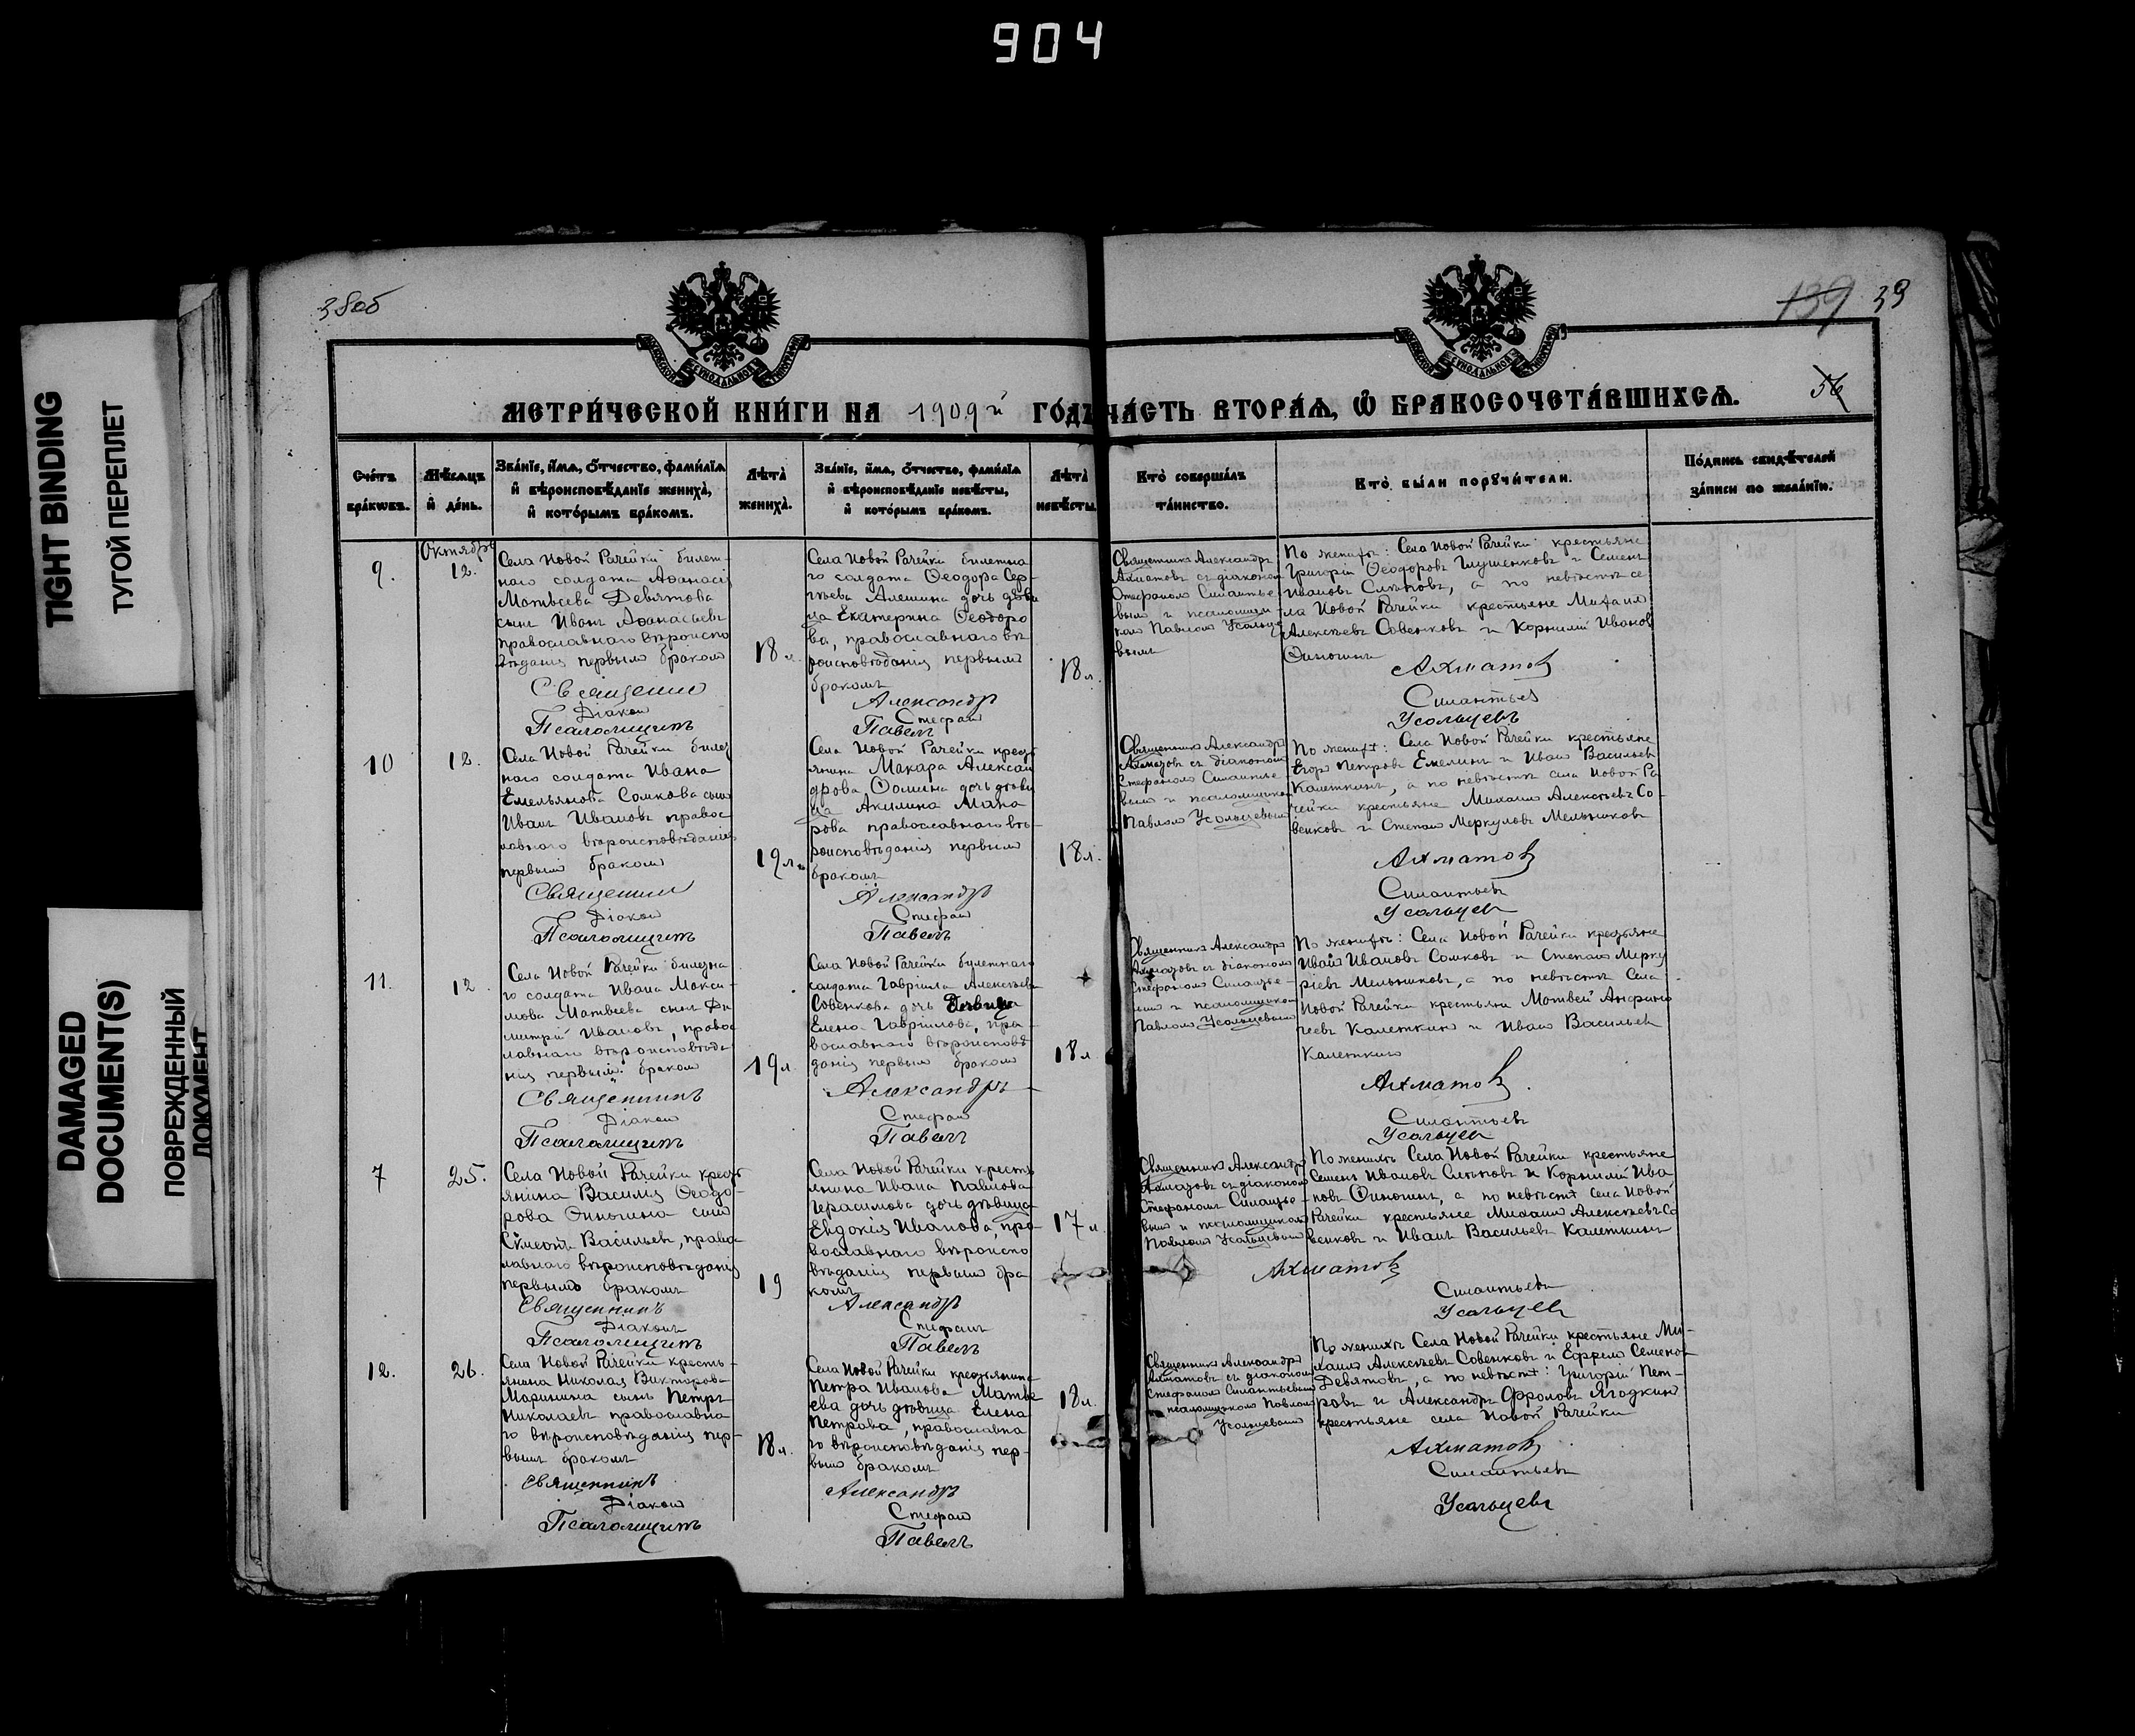 904
TIGHT BINDING
ТУГОЙ ПЕРЕПЛЕТ
DAMAGED
DOCUMENT(S)
ПОВРЕЖДЕННЫЙ
ДОКУМЕНТ
38об
139 39
56
МЕТРИ́ЧЕСКОЙ КНИ́ГИ НА 1909й ГО́ДЪ ЧА́СТЬ ВТОРА́Ѧ, Ѡ҆ БРАКОСОЧЕТА́ВШИХСѦ.
Сче́тъ
бра́кѡвъ.
Мѣ́сѧцъ
и҆ де́нь.
Зва́нїе, и҆́мѧ, о҆́тчество, фами́лїѧ
и҆ вѣроисповѣ́данїе жениха̀,
и҆ кото́рымъ бра́комъ.
Лѣта̀
жениха̀.
Зва́нїе, и҆́мѧ, о҆́тчество, фами́лїѧ
и҆ вѣроисповѣ́данїе невѣ́сты,
и҆ кото́рымъ бра́комъ.
Лѣта̀
невѣ́сты
Кто̀ соверша́лъ
та́инство.
Кто̀ бы́ли порꙋчи́тели.
По́дпись свидѣ́телей
за́писи по жела́нїю.
9.
Октябрь
12.
Села Новой Рачейки билет-
наго солдата Аѳанасія
Матвѣева Девятова
сынъ Иванъ Аѳанасьевъ
православнаго вѣроиспо
вѣданія первымъ бракомъ
18 л.
Села Новой Рачейки билетна
го солдата Ѳеодора Сер-
гѣева Алешина дочь дѣви
ца Екатерина Ѳеодоро
ва, православнаго вѣ
роисповѣданія первымъ
бракомъ
18 л.
Священникъ Александръ
Ахматовъ съ діакономъ
Стефаномъ Силантье-
вымъ и псаломщи
комъ Павломъ Усольце
вымъ
По женихѣ: Села Новой Рачейки крестьяне
Григорій Ѳеодоровъ Глушенковъ и Семенъ
Ивановъ Слѣповъ, а по невѣстѣ се
ла Новой Рачейки крестьяне Михаилъ
Алексѣевъ Совенковъ и Корнилій Иванов
Ѳинюгинъ
Священник
Александръ
Ахматовъ
Діакон
Стефанъ
Силантьев
Псаломщикъ
Павелъ
Усольцевъ
10
12.
Села Новой Рачейки билет
наго солдата Ивана
Емельянова Сомкова сынъ
Иванъ Ивановъ правос
лавнаго вѣроисповѣданія
первымъ бракомъ
19 л.
Села Новой Рачейки кресть
янина Макара Алексан
дрова Ѳомина дочь дѣви
ца Акилина Мака
рова православнаго вѣ-
роисповѣданія первымъ
бракомъ
18 л.
Священникъ Александръ
Ахматовъ съ діакономъ
Стефаномъ Силантье-
вымъ и псаломщикомъ
Павломъ Усольцевымъ
По женихѣ: Села Новой Рачейки крестьяне
Егоръ Петровъ Емелинъ и Иванъ Васильев
Калеткинъ, а по невѣстѣ села Новой Ра
чейки крестьяне Михаилъ Алексѣевъ Со-
венковъ и Степанъ Меркуловъ Мельниковъ
Священник
Александръ
Ахматовъ
Діакон
Стефан
Силантьевъ
Псаломщикъ
Павелъ
Усольцев
11.
12
Села Новой Рачейки билетна
го солдата Ивана Макси-
мова Матвѣева сынъ Ди
митрій Ивановъ, правос
лавнаго вѣроисповѣда
нія первымъ бракомъ
19 л.
Села Новой Рачейки билетнаго
солдата Гавріила Алексѣева
Совенкова дочь девица
Елена Гавріилова, пра-
вославнаго вѣроисповѣ
данія первымъ бракомъ
18 л
Священникъ Александръ
Ахматовъ съ діакономъ
Стефаномъ Силантье-
вымъ и псаломщикомъ
Павломъ Усольцевымъ
По женихѣ: Села Новой Рачейки крестьяне
Иванъ Ивановъ Сомковъ и Степанъ Мерку
ріевъ Мельниковъ, а по невѣстѣ Села
Новой Рачейки крестьяне Матвей
Калеткинъ и Иванъ Васильев
Калеткинъ
Священникъ
Александръ
Ахматовъ
Діакон
Стефан
Силантьевъ
Псаломщикъ
Павелъ
Усольцев
7
25.
Села Новой Рачейки кресть
янина Василія Ѳеодо-
рова Ѳинюгина сынъ
Сѷмеонъ Васильевъ, правос
лавнаго вѣроисповѣданія
первымъ бракомъ
19
Села Новой Рачейки кресть
янина Ивана Павлова
Герасимова дочь дѣвица
Евдокія Иванова, пра-
вославнаго вѣроиспо
вѣданія первымъ бра
комъ
17 л
Священникъ Александръ
Ахматовъ съ діакономъ
Стефаномъ Силантье-
вымъ и псаломщикомъ
Павломъ Усольцевымъ
По женихѣ Села Новой Рачейки крестьяне
Семенъ Ивановъ Слѣповъ и Корнилій Ива
новъ Ѳинюгинъ, а по невѣстѣ села Новой
Рачейки крестьяне Михаилъ Алексѣевъ Со
венковъ и Иванъ Васильевъ Калеткинъ
Священникъ
Александръ
Ахматовъ
Діаконъ
Стефанъ
Силантьевъ
Псаломщикъ
Павелъ
Усольцев
12.
26.
Села Новой Рачейки кресть-
янина Николая Викторова
Маринина сынъ Петръ
Николаевъ православна
го вѣроисповѣданія пер-
вымъ бракомъ
18 л.
Села Новой Рачейки крестьянина
Петра Иванова Матвѣ
ева дочь дѣвица Елена
Петрова, православна
го вѣроисповѣданія пер-
вымъ бракомъ
18 л.
Священникъ Александръ
Ахматовъ съ діакономъ
Стефаномъ Силантьевымъ
псаломщикомъ Павломъ
Усольцевымъ
По женихѣ Села Новой Рачейки крестьяне Ми-
хаилъ Алексѣевъ Совенковъ и Ефремъ Семенов
Девятовъ, а по невѣстѣ: Григорій Пет-
ровъ и Александръ Фроловъ Ягодкинъ
крестьяне села Новой Рачейки
Священникъ
Александръ
Ахматовъ
Діакон
Стефан
Силантьевъ
Псаломщикъ
Павелъ
Усольцевъ